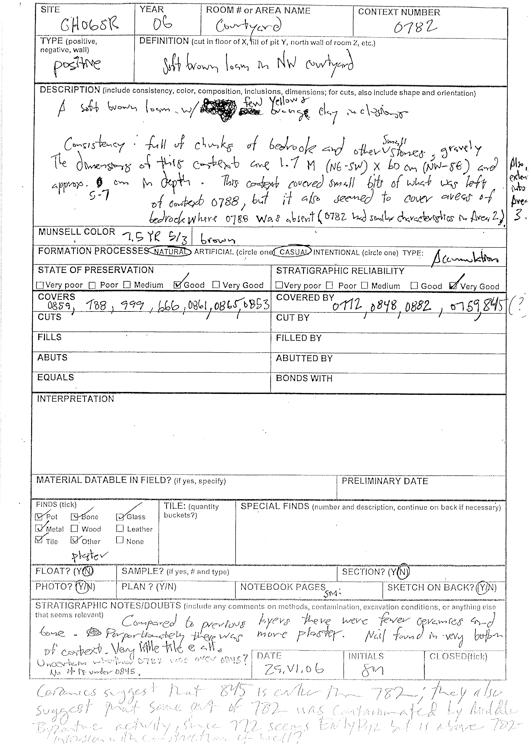 SITE YEAR ROOM # or AREA NAME CONTEXT NUMBER
GH06SR 06 Courtyard 0782
TYPE (positive, negative, wall) DEFINITION (cut in floor of X, fill of pit Y, north wall of room Z, etc.)
positive Soft brown loam in NW courtyard
DESCRIPTION (include consistency, color, composition, inclusions, dimensions; for cuts, also include shape and orientation)
A soft brown loam w/ few yellow
orange clay inclusions
Consistency: full of chunks of bedrock and other small stones, gravely
The dimensions of this context are 1.7 M (NE-SW) X 60 cm (NW-SE) and
approx. 5-7 cm in depth. This context covered small bits of what was left
of context 0788, but it also seemed to cover areas of
bedrock where 0788 was absent (0782 had similar characteristics in Area 2.)
Also, exten into Area 3.
MUNSELL COLOR 7.5 YR 5/3 brown
FORMATION PROCESSES NATURAL ARTIFICIAL (circle one) CASUAL INTENTIONAL (circle one) TYPE: Accumulation
STATE OF PRESERVATION STRATIGRAPHIC RELIABILITY
Very poor Poor Medium Good Very Good Very poor Poor Medium Good Very Good
COVERS 0859, 788, 999, 666, 0861, 0865, 0853 COVERED BY 0772, 0848, 0882, 0759, 845 (?
CUTS CUT BY
FILLS FILLED BY
ABUTS ABUTTED BY
EQUALS BONDS WITH
INTERPRETATION
MATERIAL DATABLE IN FIELD? (if yes, specify) PRELIMINARY DATE
FINDS (tick) TILE: (quantity buckets?) SPECIAL FINDS (number and description, continue on back if necessary)
Pot Bone Glass
Metal Wood Leather
Tile Other None
plaster
FLOAT? (Y/N) SAMPLE? (if yes, # and type) SECTION? (Y/N)
PHOTO? (Y/N) PLAN? (Y/N) NOTEBOOK PAGES SM: SKETCH ON BACK? (Y/N)
STRATIGRAPHIC NOTES/DOUBTS (include any comments on methods, contamination, excavation conditions, or anything else
that seems relevant) Compared to previous layers there were fewer ceramics and
bone. Proportionately there was more plaster. Nail found in very bottom
of context. Very little tile at all.
Uncertain whether 0782 was over 0845?
No it is under 0845.
DATE INITIALS CLOSED(tick)
29.VI.06
Ceramics suggest that 845 is earlier than 782; they also
suggest that some of 782 was contaminated by Middle
Byzantine activity, since 772 seems Early Byz but is above 782